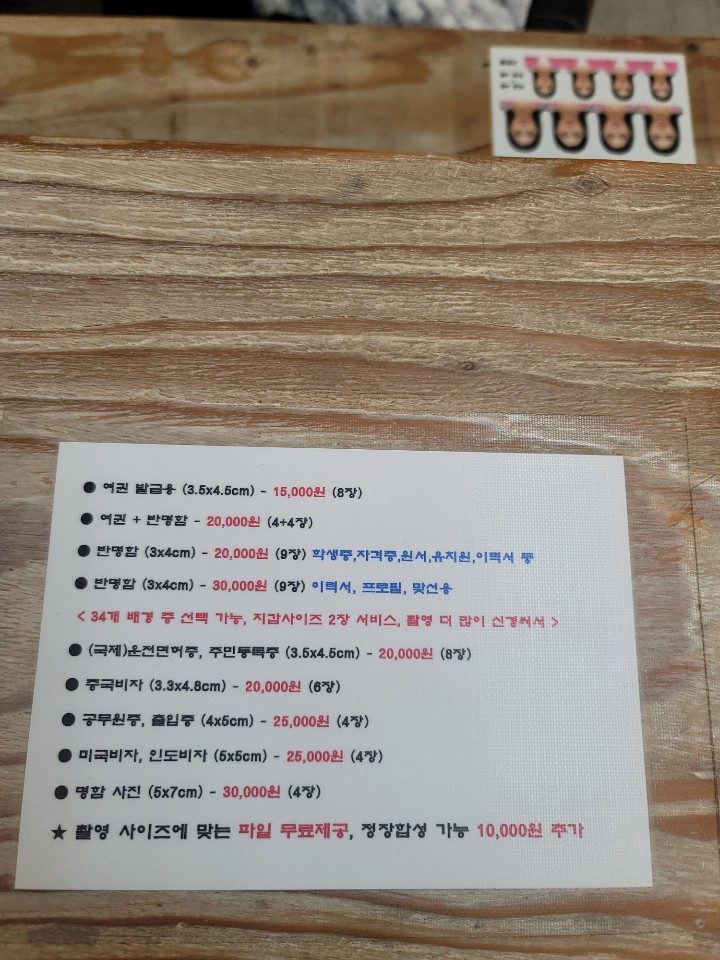 ● 여권 발급용 (3.5x4.5cm) - 15,000원 (8장)
● 여권 + 반명함 - 20,000원 (4+4장)
● 반명함 (3x4cm) - 20,000원 (9장) 학생증,자격증,원서,유치원,이력서 등
● 반명함 (3x4cm) - 30,000원 (9장) 이력서, 프로필, 맞선용
< 34개 배경 중 선택 가능, 지갑사이즈 2장 서비스, 촬영 더 많이 신경써서 >
● (국제)운전면허증, 주민등록증 (3.5x4.5cm) - 20,000원 (8장)
● 중국비자 (3.3x4.8cm) - 20,000원 (6장)
● 공무원증, 출입증 (4x5cm) - 25,000원 (4장)
● 미국비자, 인도비자 (5x5cm) - 25,000원 (4장)
● 명함 사진 (5x7cm) - 30,000원 (4장)
★ 촬영 사이즈에 맞는 파일 무료제공, 정장합성 가능 10,000원 추가